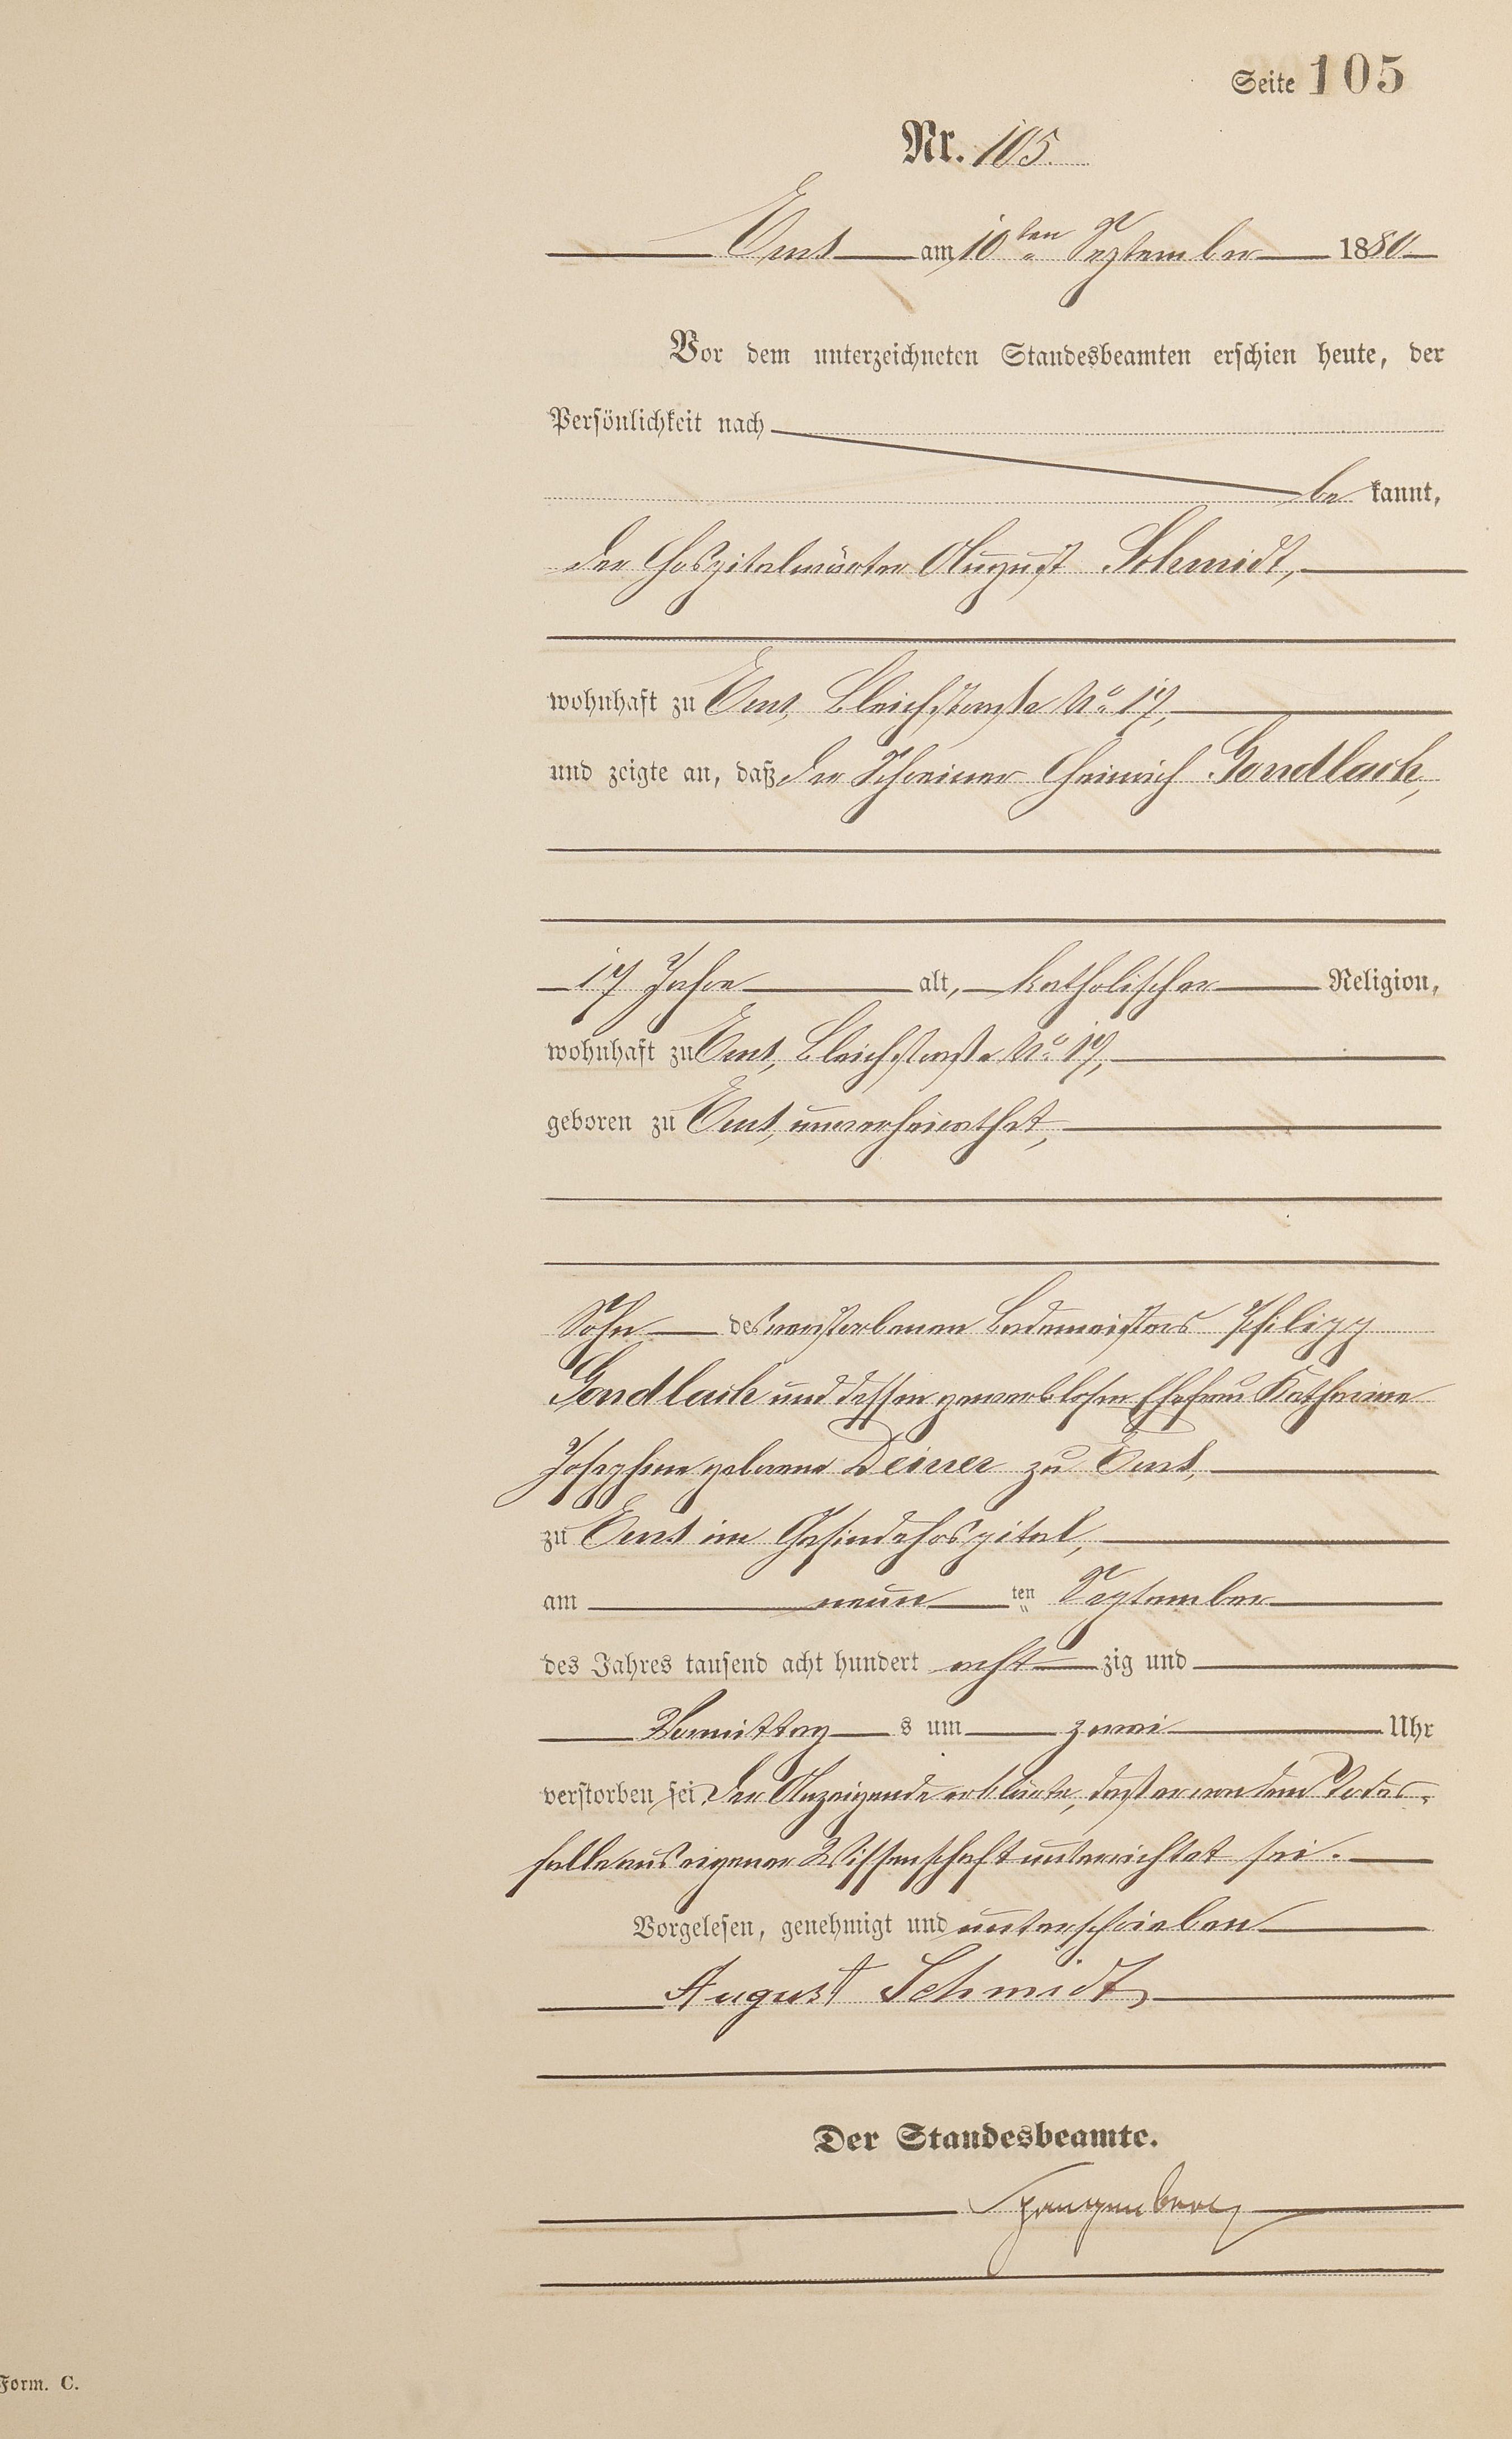 Seite 105
Nr. 105.
Ems am 10ten September 1880
Vor dem unterzeichneten Standesbeamten erschien heute, der
Persönlichkeit nach
be kannt,
der Hospitalwärter August Schmidt,
wohnhaft zu Ems, Bleichstraße No. 17,
und zeigte an, daß der Schreiner Heinrich Gondlach,
17 Jahre alt, katholischer Religion,
wohnhaft zu Ems, Bleichstraße No. 17,
geboren zu Ems, unverheirathet,
Sohn des verstorbenen Bademeisters Philipp
Gondlach und dessen gewerblosen Ehefrau Katharina
Josephine geborene Deiner zu Ems,
zu Ems im Gesindehospital,
am neun ten September
des Jahres tausend acht hundert acht zig und
Vormittag s um zwei Uhr
verstorben sei. Der Anzeigende erklärte, daß er von dem Todes-
falle aus eigener Wissenschaft unterrichtet sei.
Vorgelesen, genehmigt und unterschrieben
August Schmidt
Der Standesbeamte.
Spangenberg
Form. C.